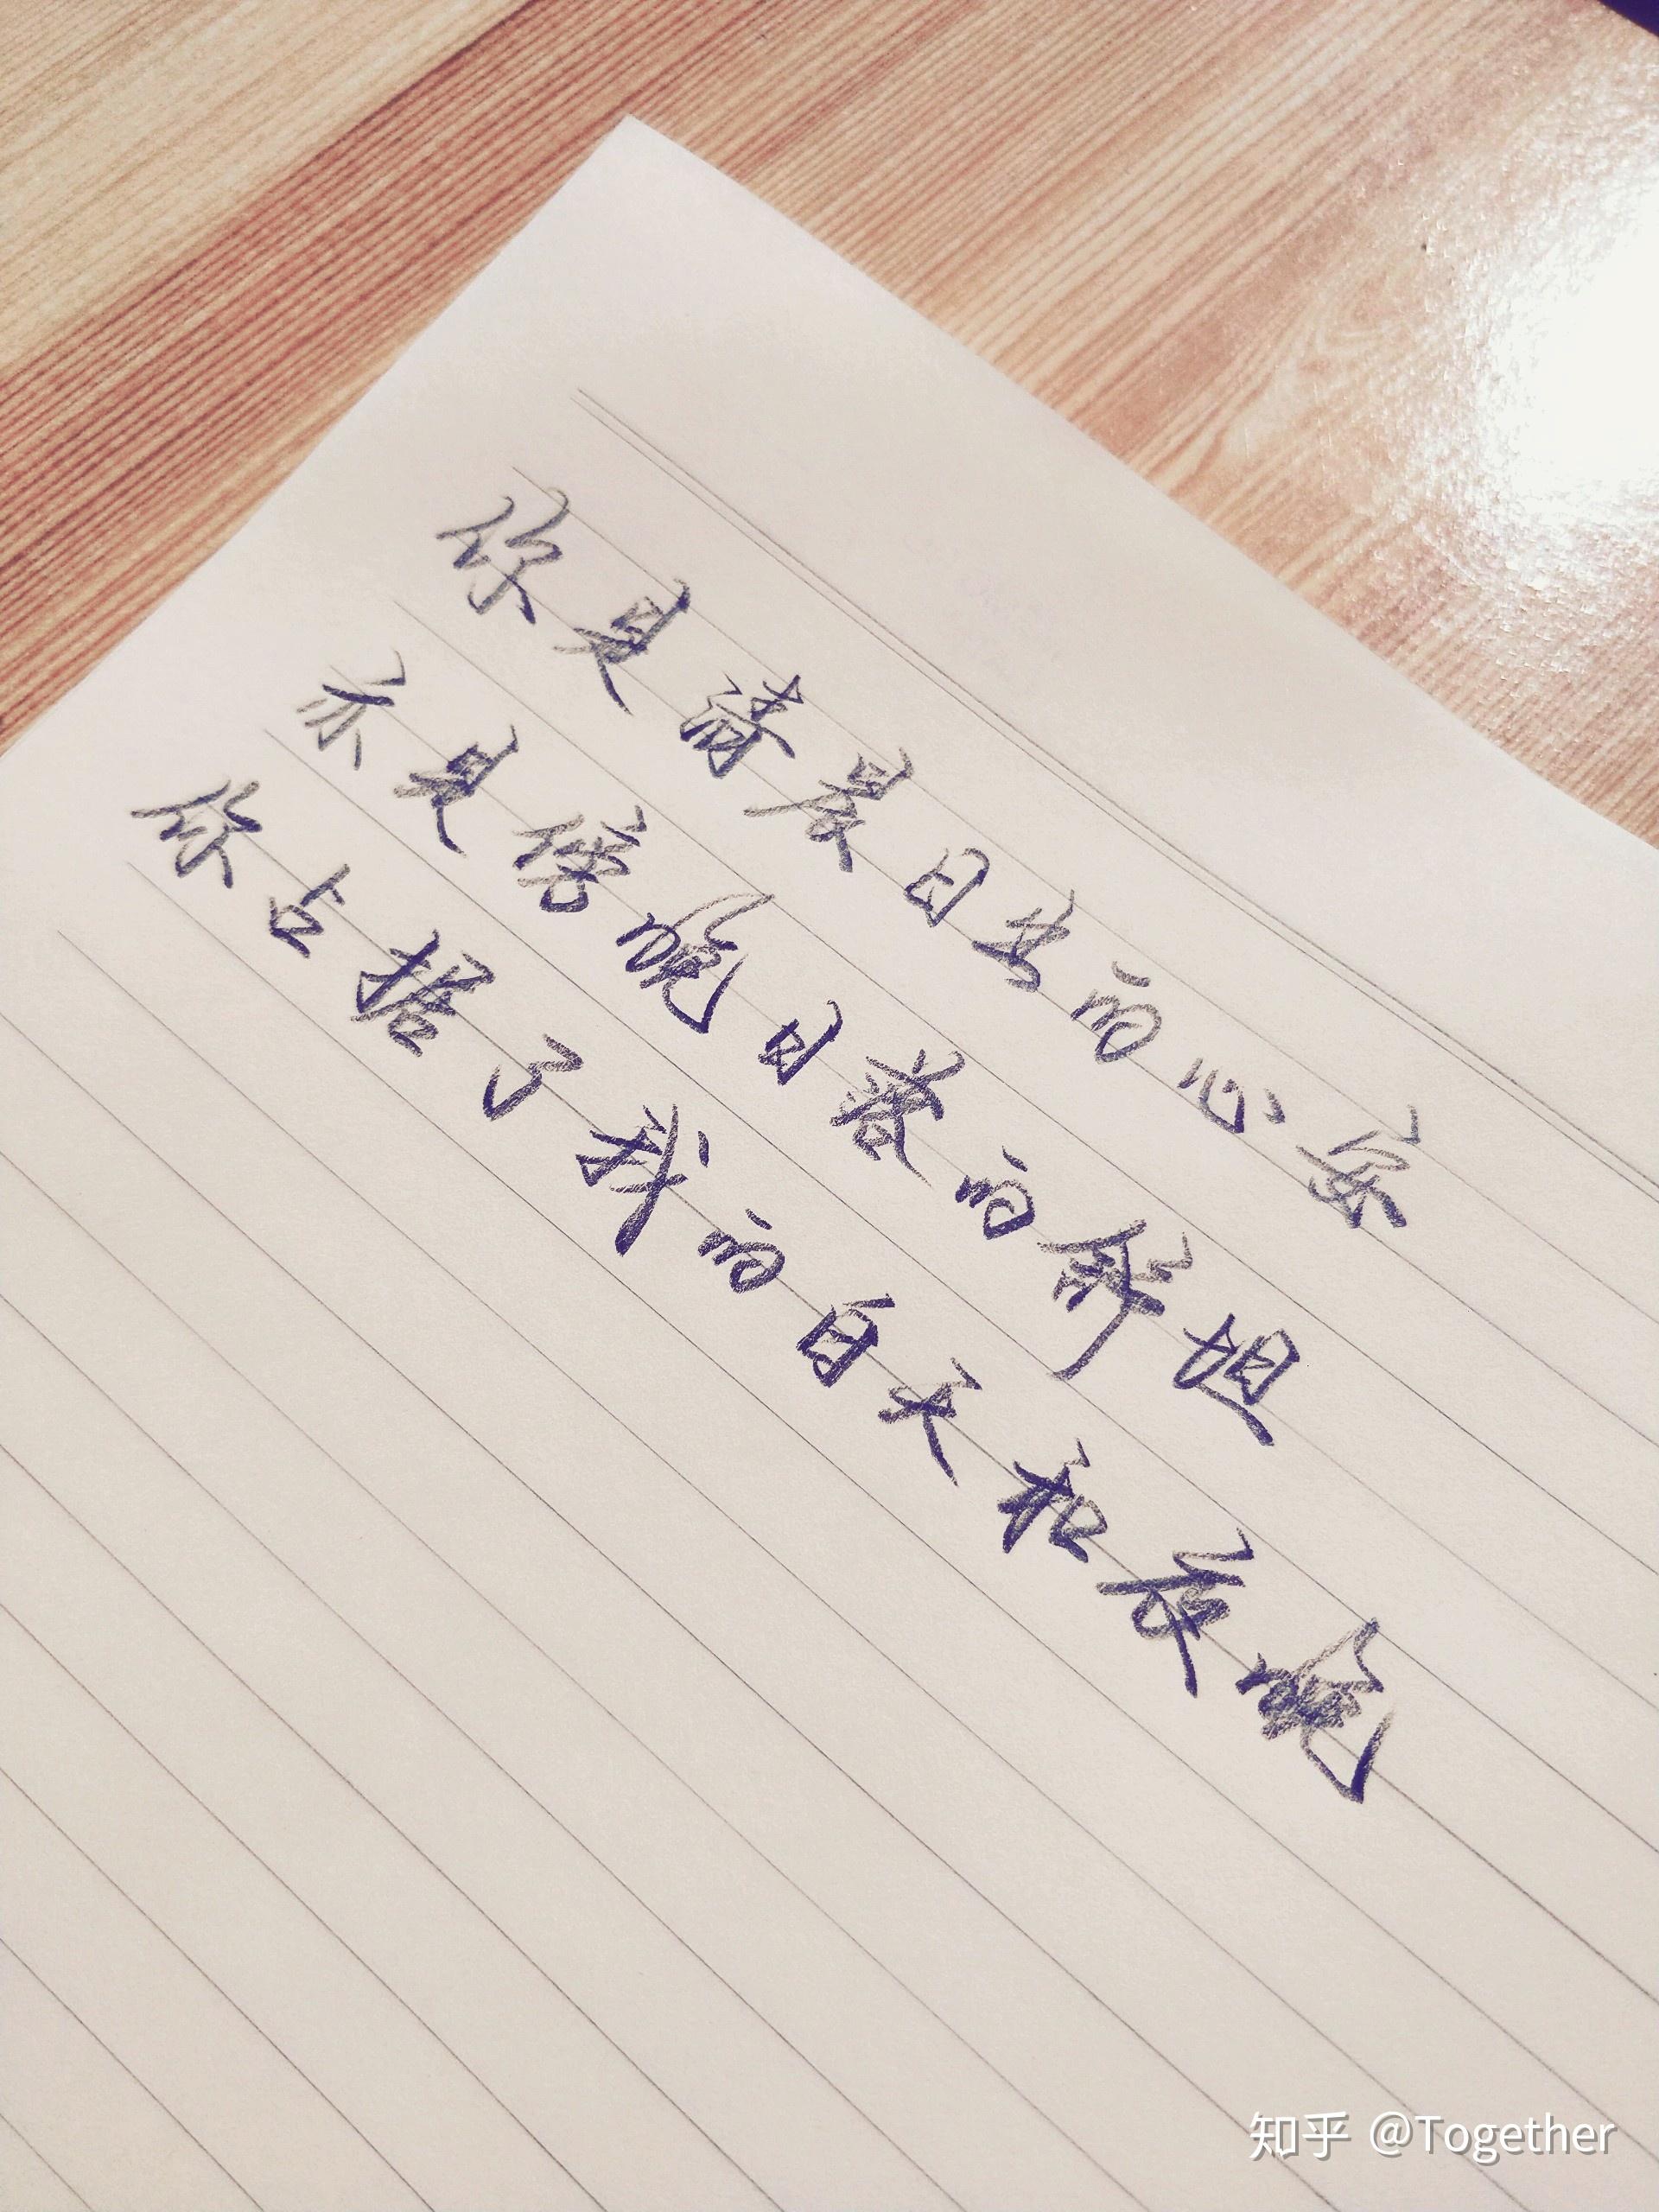 你是清晨日出的心安
亦是傍晚日落的纤妲
你占据了我的白天和夜晚
知乎 @Together